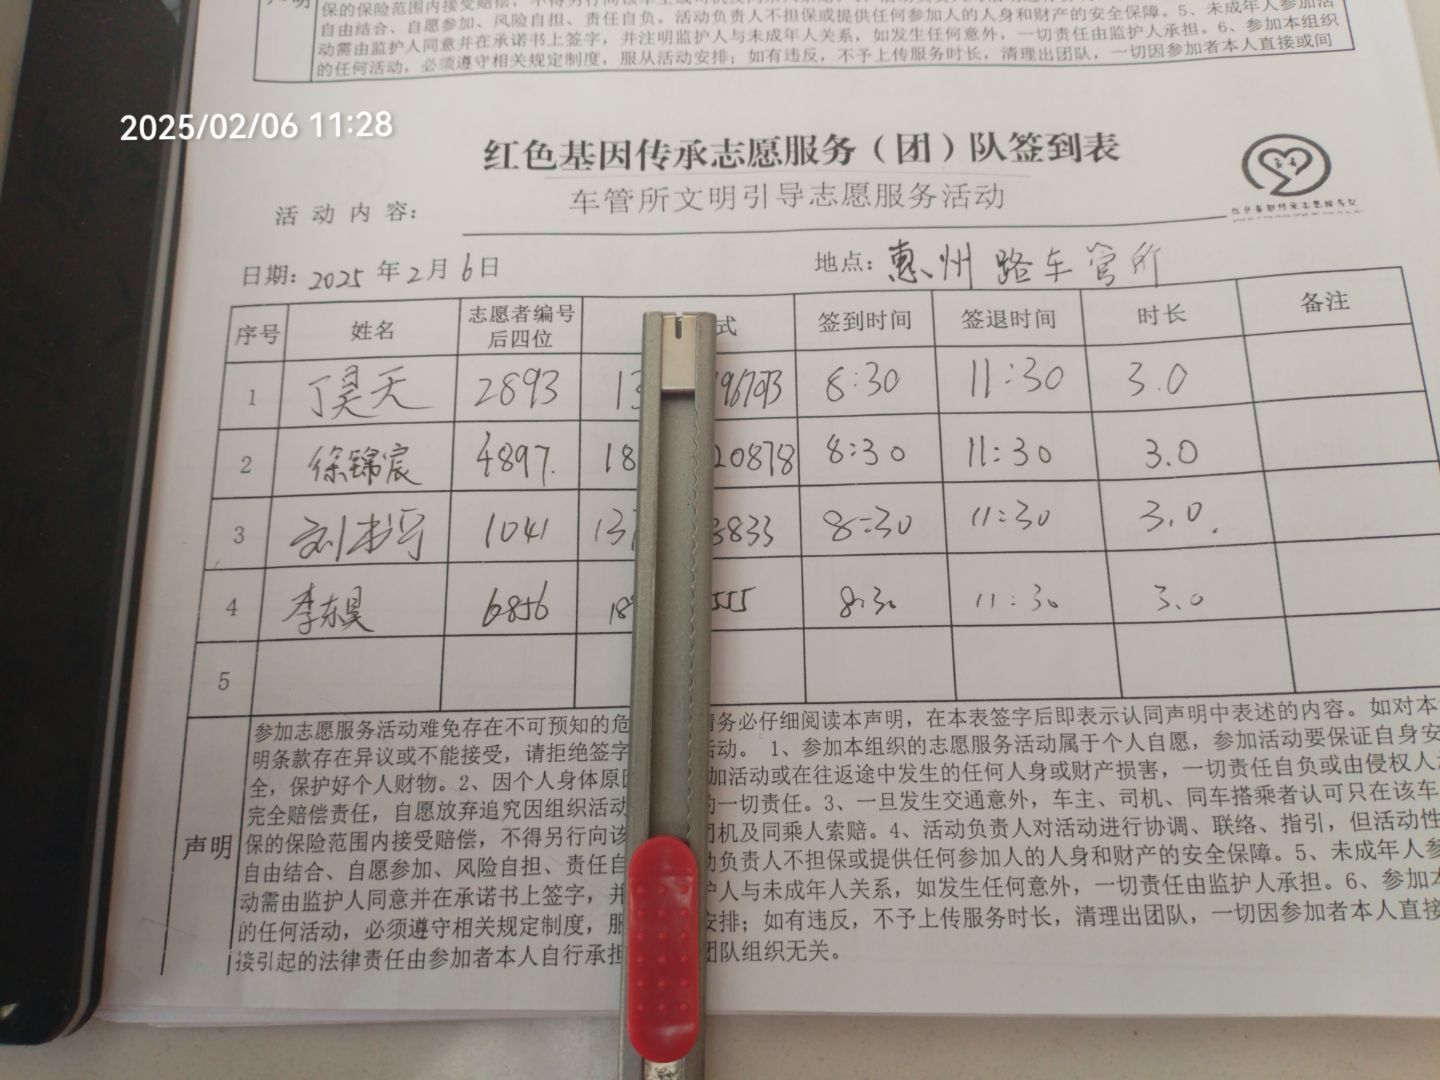 声明
保的保险范围内接受赔偿，不得另行向该车主或司机及同乘人索赔。4、活动负责人对活动进行
自由结合、自愿参加、风险自担、责任自负。活动负责人不担保或提供任何参加人的人身和财产的安全保障。5、未成年人参加活
动需由监护人同意并在承诺书上签字，并注明监护人与未成年人关系，如发生任何意外，一切责任由监护人承担。6、参加本组织
的任何活动，必须遵守相关规定制度，服从活动安排；如有违反，不予上传服务时长，清理出团队，一切因参加者本人直接或间
2025/02/06 11:28
红色基因传承志愿服务（团）队签到表
活动内容： 车管所文明引导志愿服务活动
日期：2025年2月6日 地点：惠州路车管所
序号 姓名 志愿者编号后四位 式 签到时间 签退时间 时长 备注
1 丁昊天 2893 13 8:30 11:30 3.0
2 徐锦宸 4897. 18 20878 8:30 11:30 3.0
3 刘 1041 137 3833 8:30 11:30 3.0.
4 李东昊 6856 18 555 8:30 11:30 3.0
5
声明
参加志愿服务活动难免存在不可预知的危 请务必仔细阅读本声明，在本表签字后即表示认同声明中表述的内容。如对本
明条款存在异议或不能接受，请拒绝签字 活动。 1、参加本组织的志愿服务活动属于个人自愿，参加活动要保证自身安
全，保护好个人财物。2、因个人身体原因 加活动或在往返途中发生的任何人身或财产损害，一切责任自负或由侵权人
完全赔偿责任，自愿放弃追究因组织活动 的一切责任。3、一旦发生交通意外，车主、司机、同车搭乘者认可只在该车
保的保险范围内接受赔偿，不得另行向该 司机及同乘人索赔。4、活动负责人对活动进行协调、联络、指引，但活动性
自由结合、自愿参加、风险自担、责任自 动负责人不担保或提供任何参加人的人身和财产的安全保障。5、未成年人参
动需由监护人同意并在承诺书上签字，并 护人与未成年人关系，如发生任何意外，一切责任由监护人承担。6、参加本
的任何活动，必须遵守相关规定制度，服 安排；如有违反，不予上传服务时长，清理出团队，一切因参加者本人直接
接引起的法律责任由参加者本人自行承担 团队组织无关。